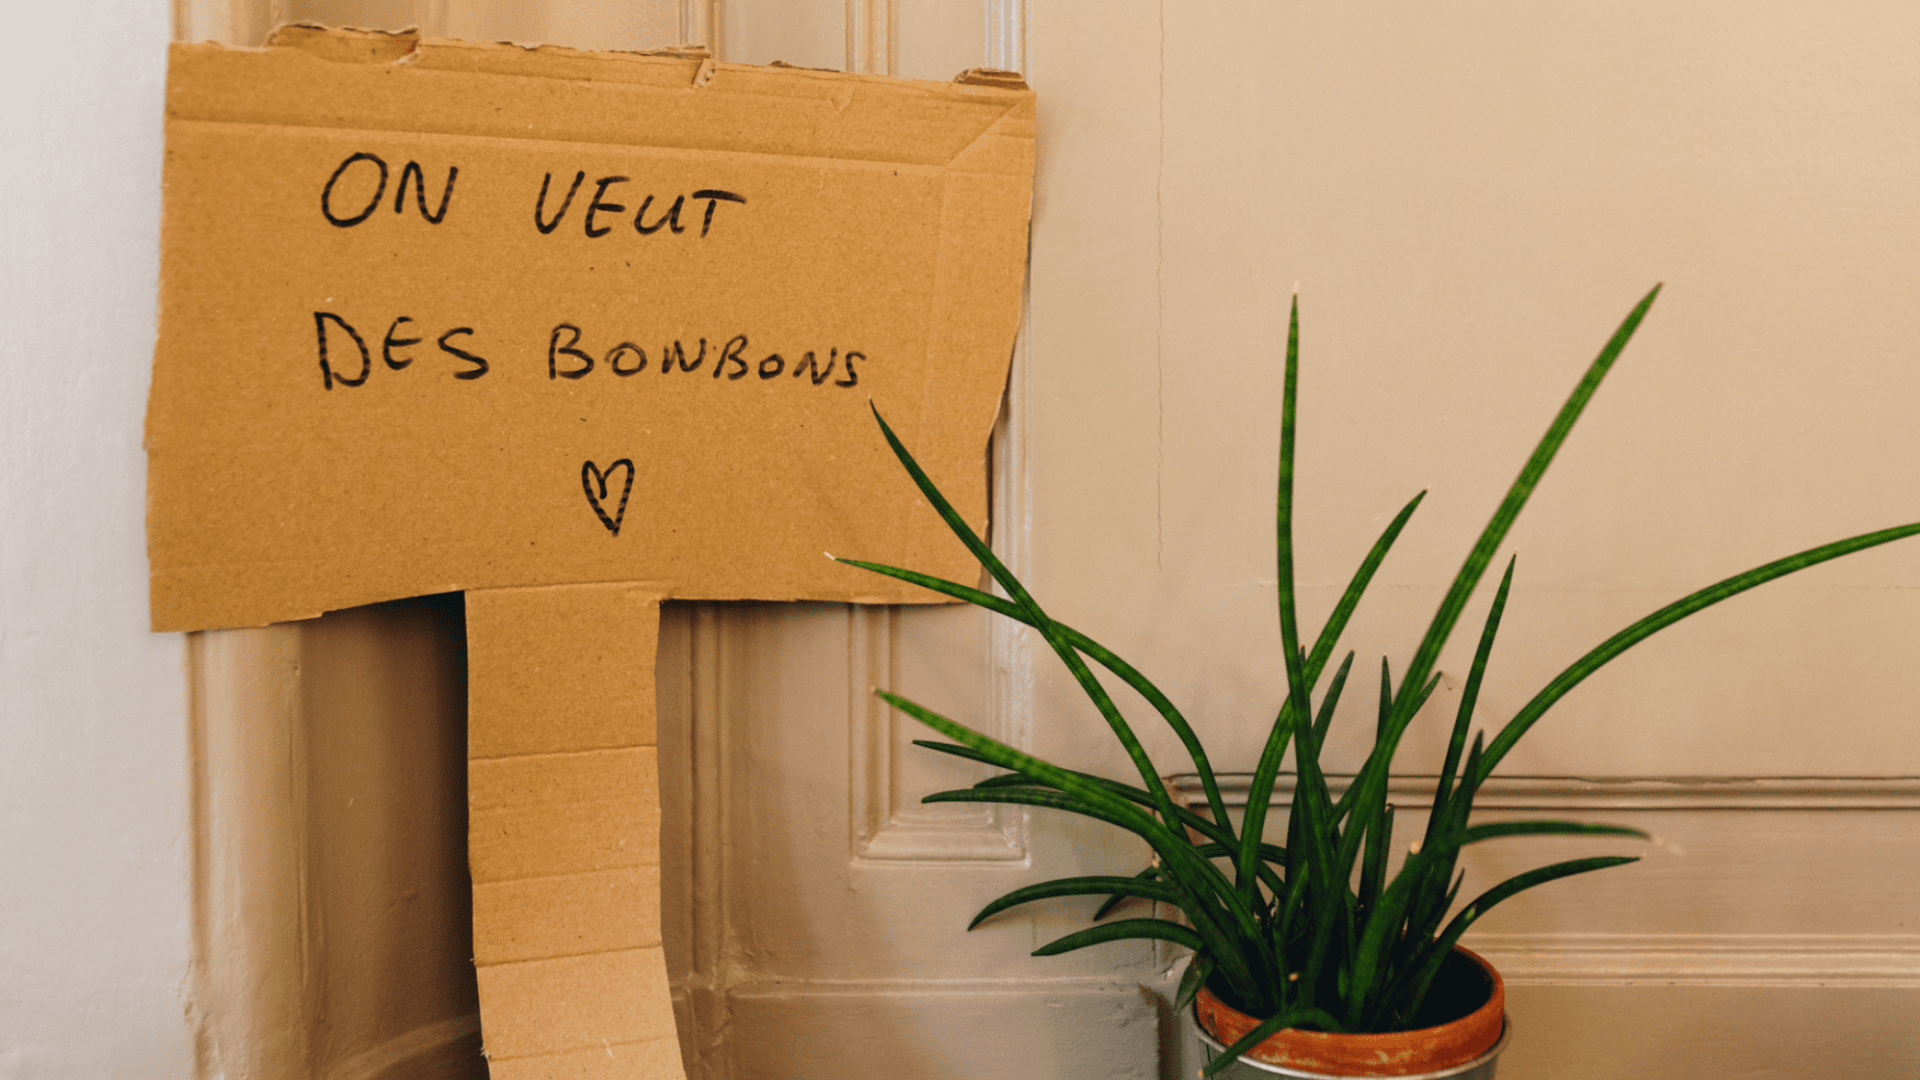 ON VEUT
DES BONBONS